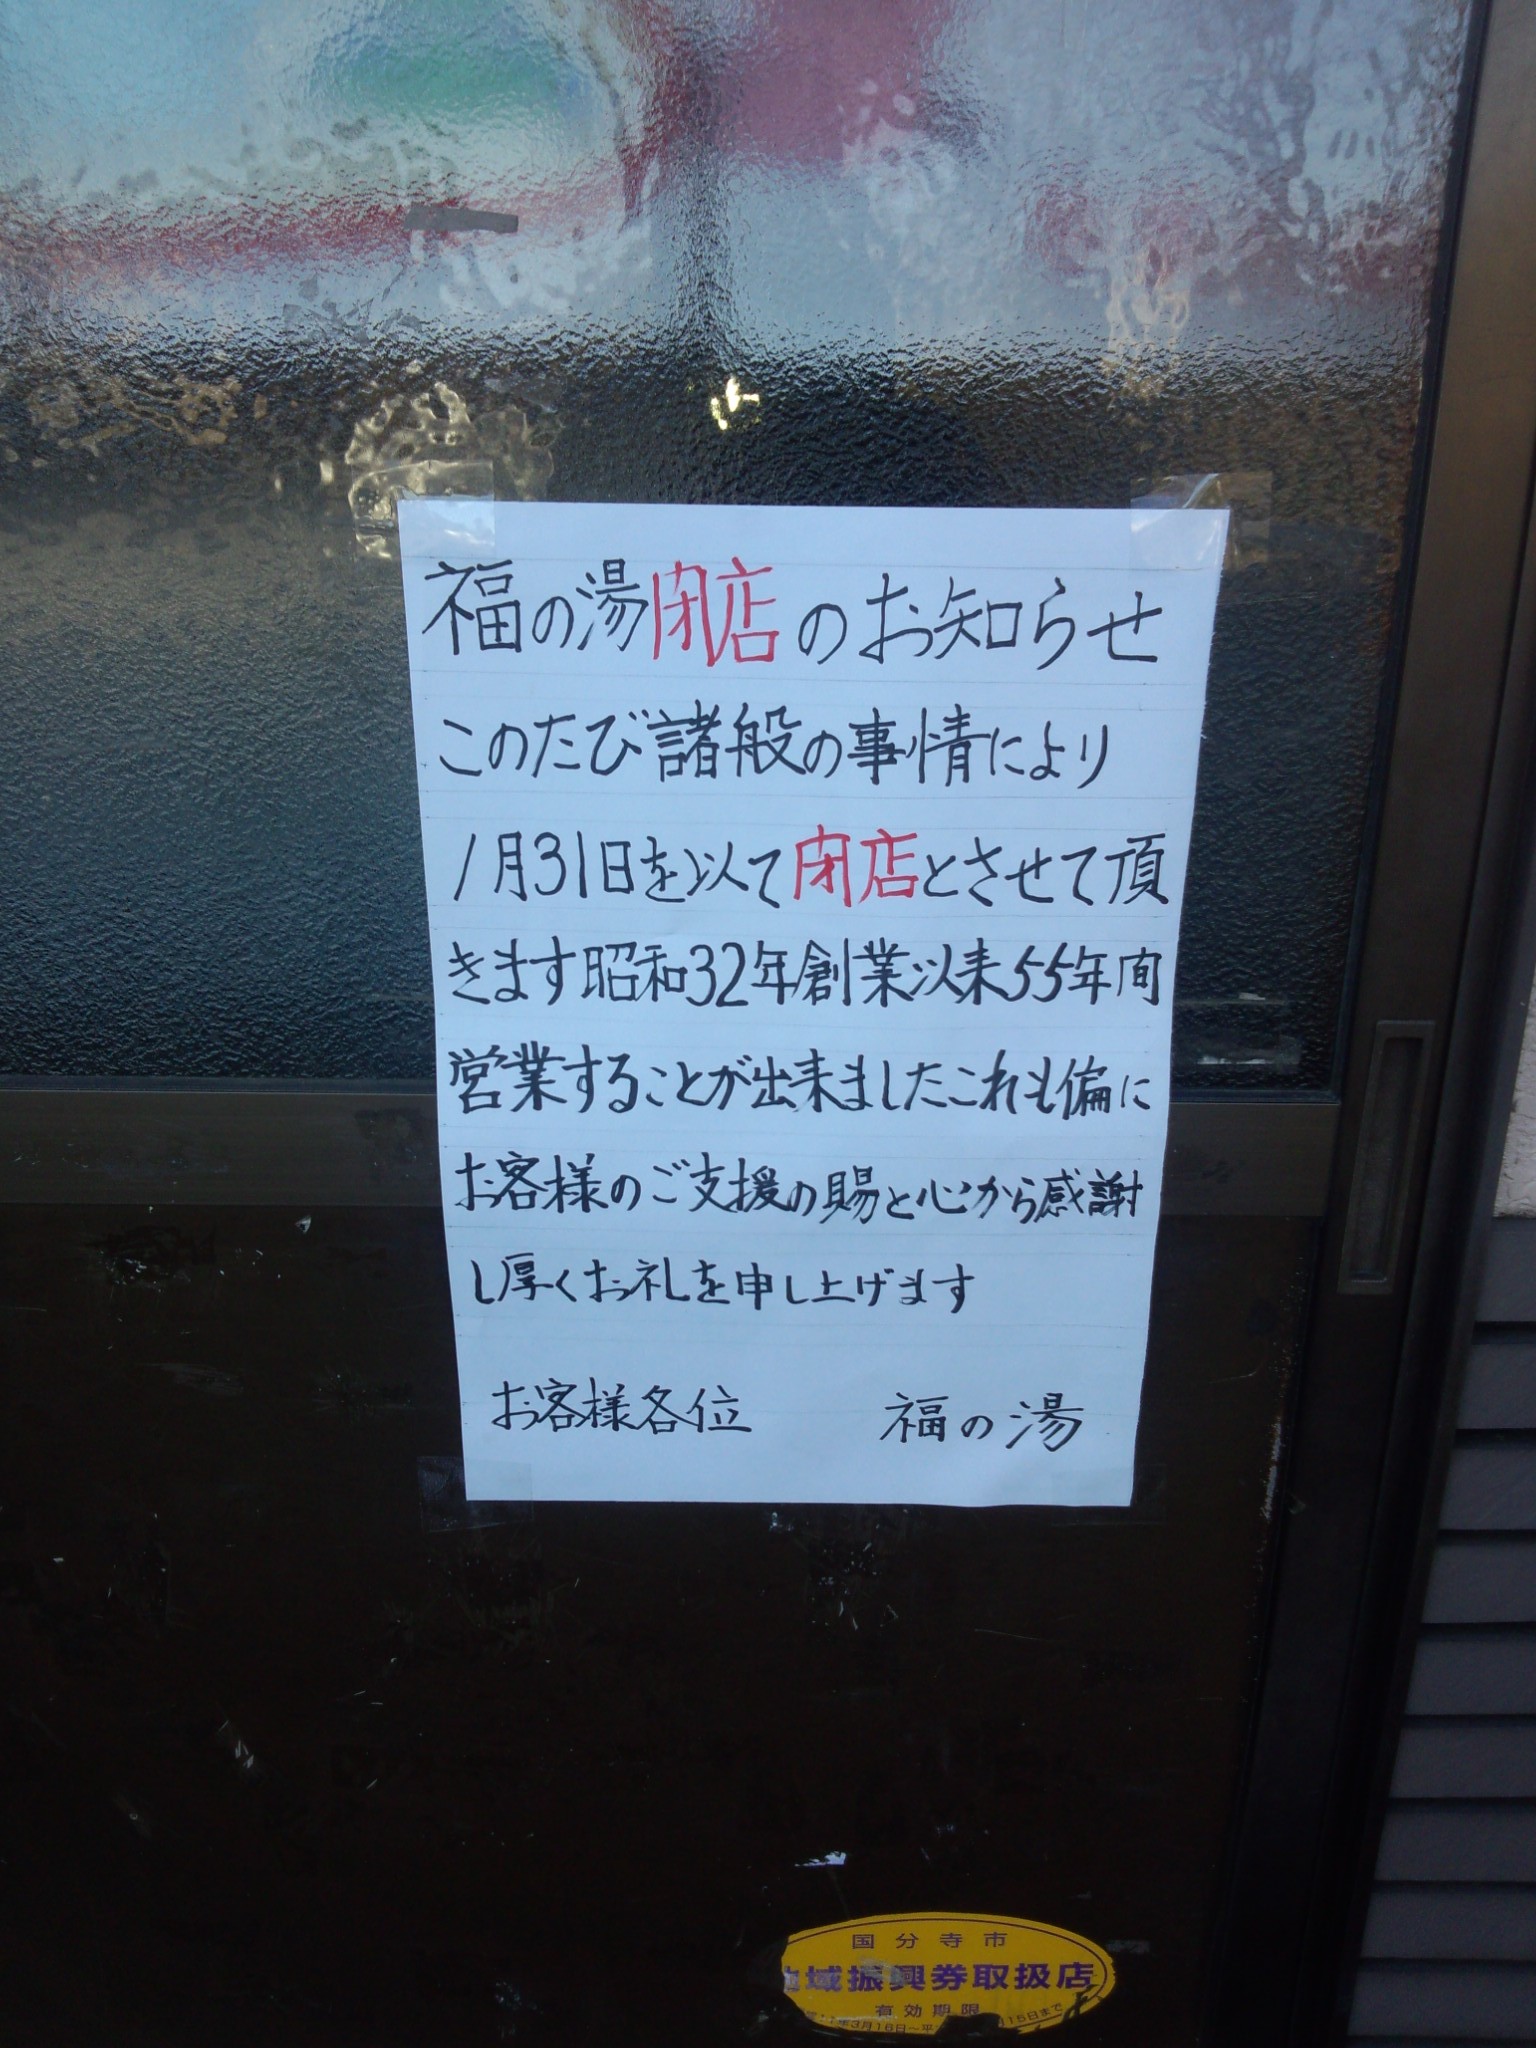 福の湯閉店のお知らせ
このたび諸般の事情により
1月31日を以て閉店とさせて頂
きます昭和32年創業以来55年間
営業することが出来ましたこれも偏に
お客様のご支援の賜と心から感謝
し厚くお礼を申し上げます
お客様各位 福の湯
国分寺市
地域振興券取扱店
有効期限
年3月16日～平 月15日まで